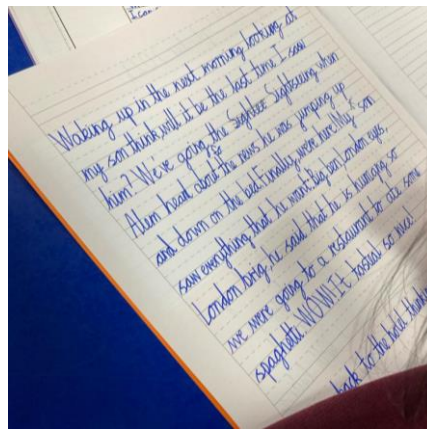 Waking up in the next morning looking at
my son think, will it be the last time I saw
him? We're going to the Sightee Sightseeing when
Alem heard about the news he was jumping up
and down on the bed. Finally, were here! My son
saw everything that he want, big ben, London eyes,
London brig, he said that he is hungry so
we were going to a restaurant to ate some
spaghetti. WOW! It tasted so nice!
back to the hotel thinking